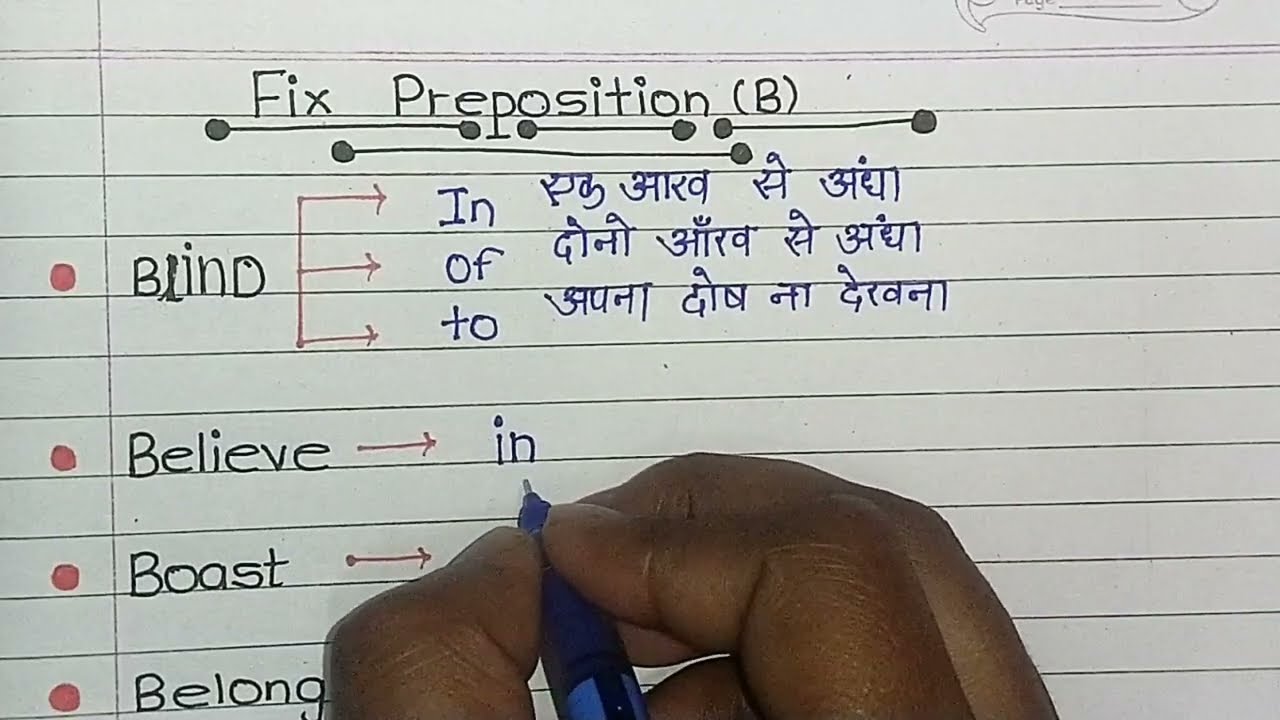 Page
Fix Preposition (B)
In एक आरव से अंधा
दोनो आँरव से अंधा
BlinD Of
अपना दोष ना देरवना
to
Believe → in
Boast →
Belong